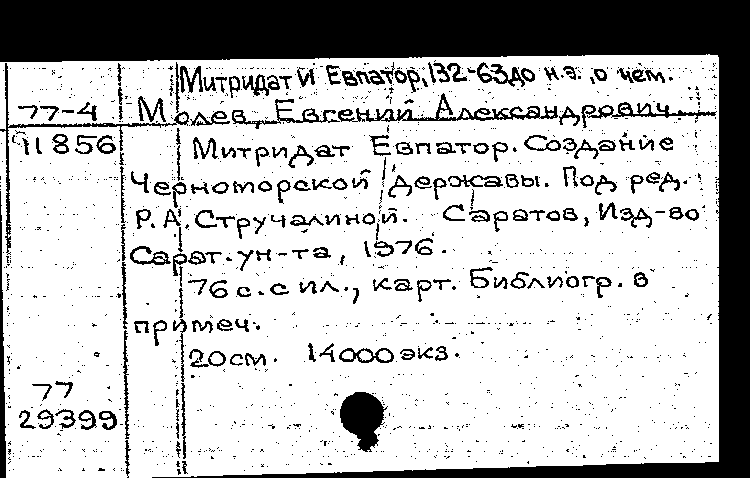 Митридат VI Евпатор, 132-63 до н.э., о нем.
77-4 Молев, Евгений Александрович.
91856 Митридат Евпатор. Создание
Черноморской державы. Под ред.
Р.А. Стручалиной. Саратов, Изд-во
Сарат. ун-та, 1976.
76 с. с ил., карт. Библиогр. в
примеч.
20 см. 14000 экз.
77
29399